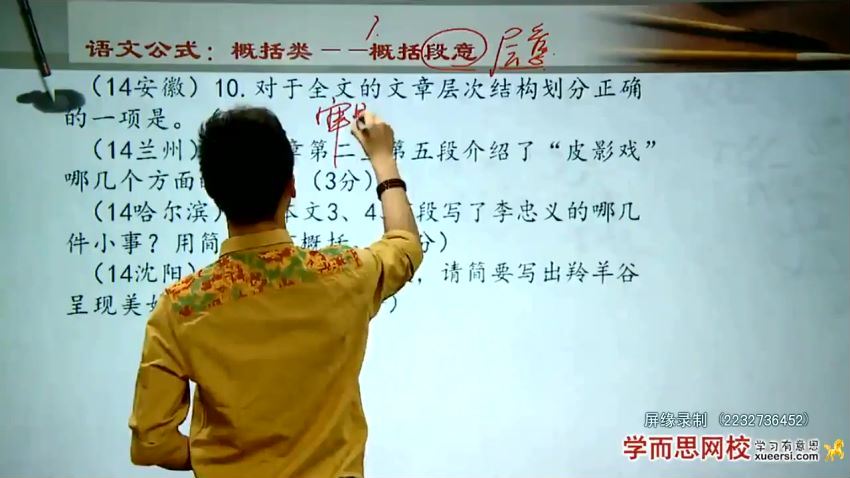 语文公式：概括类——概括段意 层意
（14安徽）10.对于全文的文章层次结构划分正确
的一项是。（
（14兰州） 章第二 第五段介绍了“皮影戏”
哪几个方面的 （3分）
（14哈尔滨） 本文3、4 段写了李忠义的哪几
件小事？用简 概括 分）
（14沈阳） ，请简要写出羚羊谷
呈现美 ）
审
屏缘录制（2232736452）
学而思网校 学习有意思
xueersi.com